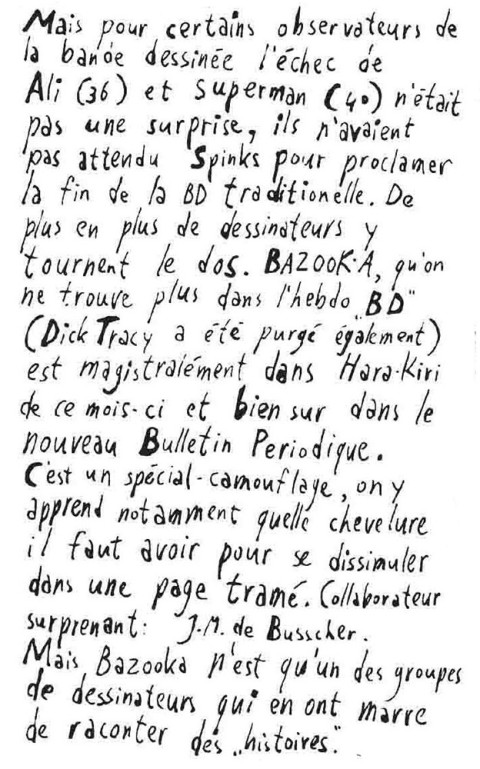 Mais pour certains observateurs de
la bande dessinée l'échec de
Ali (36) et Superman (40) n'était
pas une surprise, ils n'avaient
pas attendu Spinks pour proclamer
la fin de la BD traditionelle. De
plus en plus de dessinateurs y
tournent le dos. BAZOOKA, qu'on
ne trouve plus dans l'hebdo „BD"
(Dick Tracy a été purgé également)
est magistralément dans Hara-Kiri
de ce mois-ci et bien sur dans le
nouveau Bulletin Periodique.
C'est un spécial-camouflage, on y
apprend notamment quelle chevelure
il faut avoir pour se dissimuler
dans une page tramé. Collaborateur
surprenant: J.M. de Busscher.
Mais Bazooka n'est qu'un des groupes
de dessinateurs qui en ont marre
de raconter des „histoires".